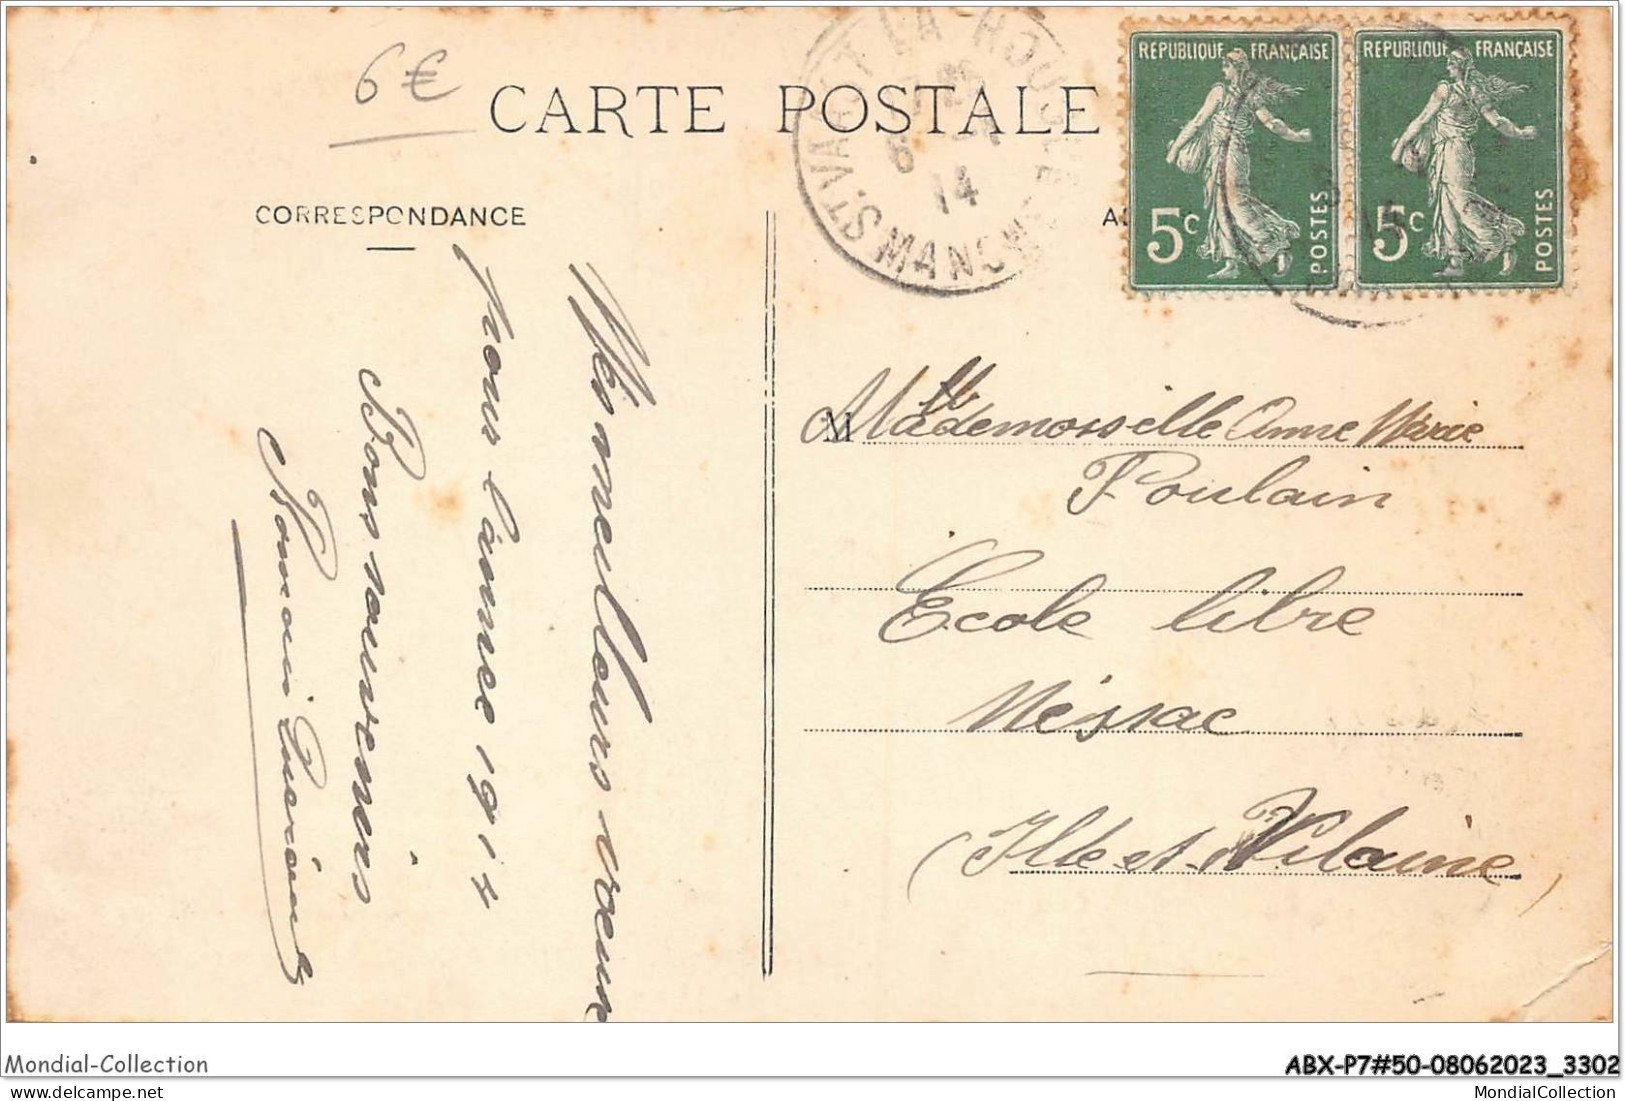 6€
CARTE POSTALE
CORRESPONDANCE
ST VAAST LA HOUGUE
6 - 1
14
MANCHE
REPUBLIQUE FRANÇAISE
5c
POSTES
REPUBLIQUE FRANÇAISE
5c
POSTES
Mes meilleurs voeux
pour l'année 1914
Bons souvenirs
M Mademoiselle Anne Marie
Poulain
Ecole libre
Messac
(Ille et Vilaine)
Mondial-Collection
ABX-P7#50-08062023_3302
© delcampe.net
MondialCollection